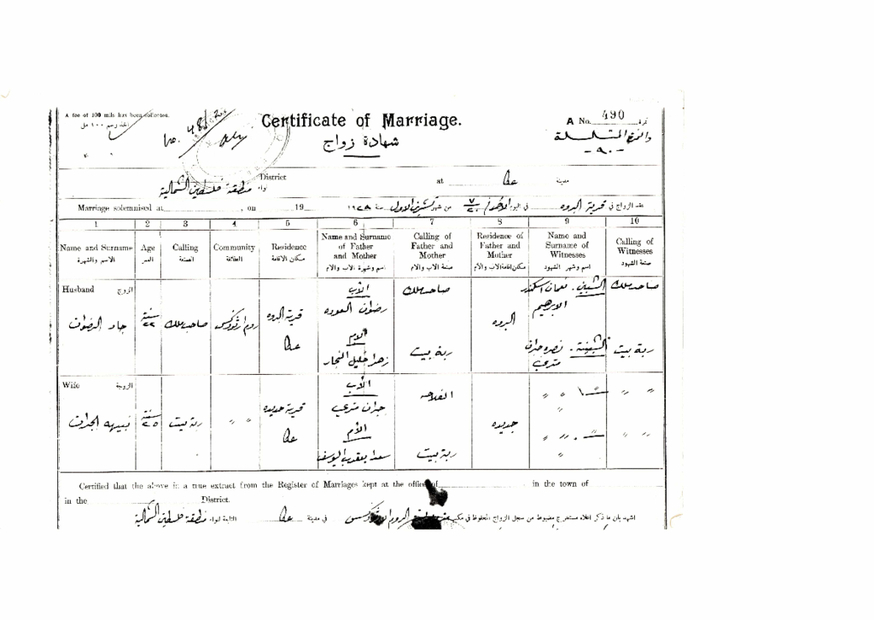 A fee of 100 mils has been collected.
No. 48/
Certificate of Marriage.
A No. 490 نمرة
شهادة زواج
والنمرة المتسلسلة
- ٩٠ -
District
at
عكا
مدينة
لواء منطقة فلسطين الشمالية
Marriage solemnised at , on 19
عقد الزواج في قرية البروه في اليوم الاحد / من شهر تشرين الاول سنة ١٩٢٨
1 2 3 4 5 6 7 8 9 10
Name and Surname
الاسم والشهرة
Age
العمر
Calling
الصنعة
Community
الطائفة
Residence
مكان الاقامة
Name and Surname
of Father
and Mother
اسم وشهرة الأب والأم
Calling of
Father and
Mother
صنعة الأب والأم
Residence of
Father and
Mother
مكان اقامة الأب والأم
Name and
Surname of
Witnesses
اسم وشهرة الشهود
Calling of
Witnesses
صنعة الشهود
Husband الزوج
جاد الرضوان
سنة
٢٢
صاحب ملك
روم ارثوذكس
قرية البروه
عكا
الأب
رضوان العوده
الأم
زهرا خليل النجار
صاحب ملك
ربة بيت
البروه
الشبين. نعمان اسكندر
الابراهيم
الشبينة. نصره جبران
متري
صاحب ملك
ربة بيت
Wife الزوجة
نبيهه الجبران
سنة
٢٥
ربة بيت
" "
قرية جديده
عكا
الأب
جبران متري
الأم
سعدا يعقوب اليوسف
الفلاحه
ربة بيت
جديده
Certified that the above is a true extract from the Register of Marriages kept at the office of in the town of
in the District.
اشهد بان ما ذكر اعلاه مستخرج مضبوط من سجل الزواج المحفوظ في مكتب الروم في مدينة عكا التابعة لواء منطقة فلسطين الشمالية